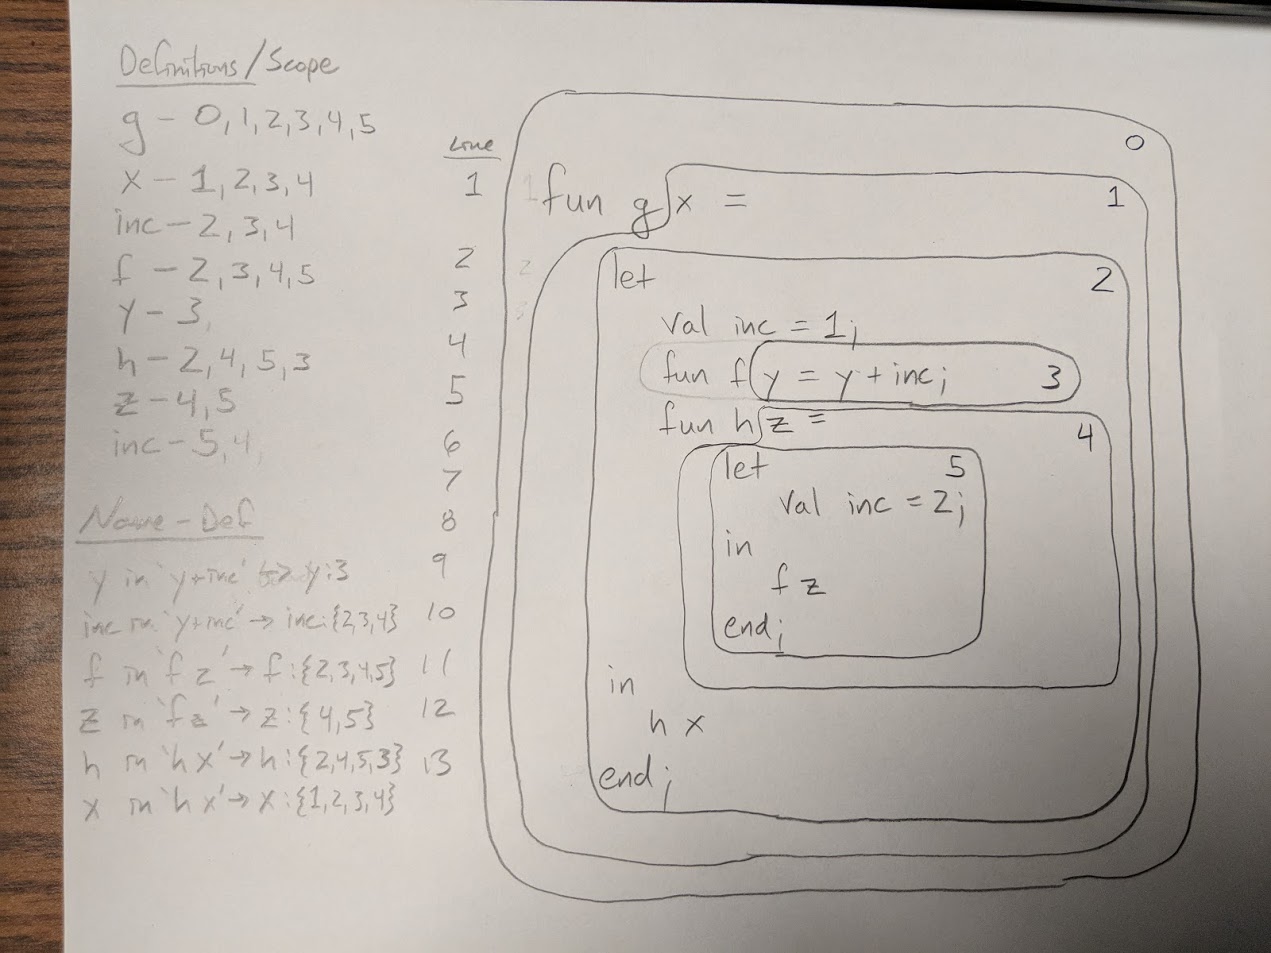 Definitions/Scope
g - 0,1,2,3,4,5
x - 1,2,3,4
inc - 2,3,4
f - 2,3,4,5
y - 3,
h - 2,4,5,3
z - 4,5
inc - 5,4,
Name - Def
y in 'y+inc' → y:3
inc in 'y+inc' → inc:{2,3,4}
f in 'f z' → f:{2,3,4,5}
z in 'f z' → z:{4,5}
h in 'h x' → h:{2,4,5,3}
x in 'h x' → x:{1,2,3,4}
Line
1
2
3
4
5
6
7
8
9
10
11
12
13
0
1 fun g x = 1
2 let 2
3 val inc = 1;
fun f y = y + inc; 3
fun h z = 4
let 5
val inc = 2;
in
f z
end;
in
h x
end;